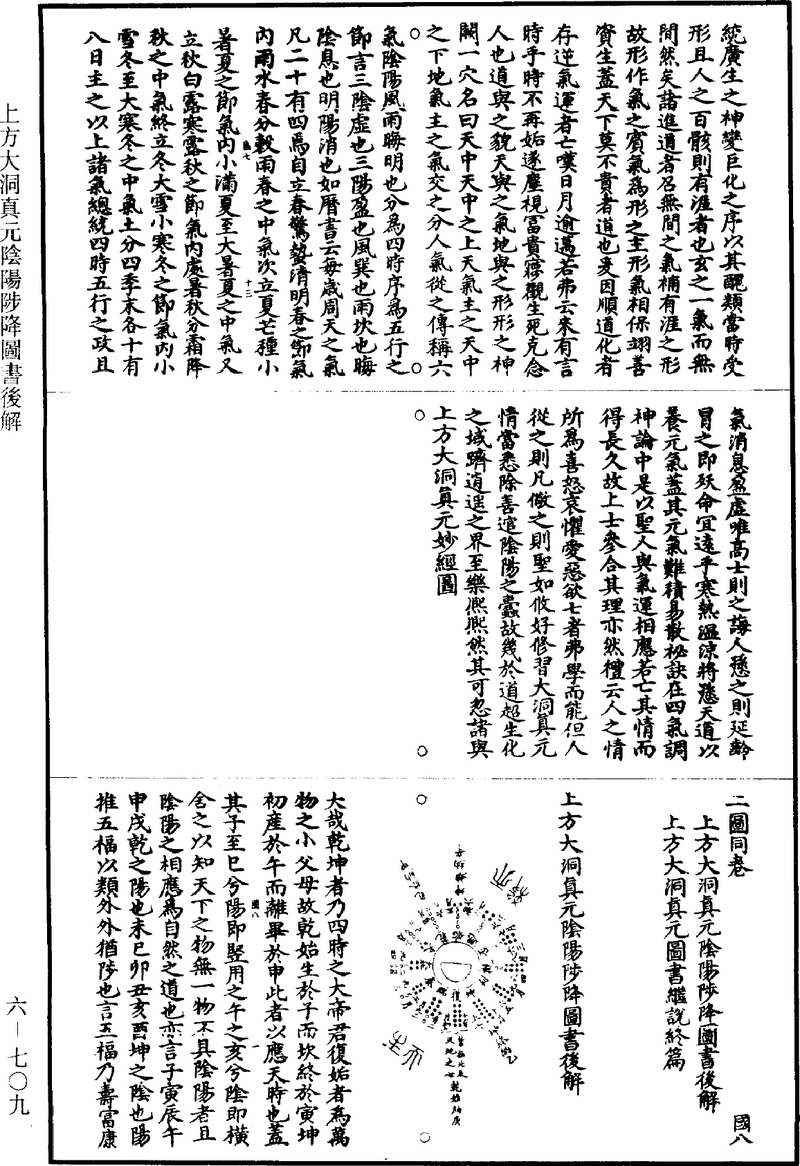 統廣生之神變巨化之序以其醜類當時受
形且人之百骸則有涯者也玄之一氣而無
間然矣諸進道者召無間之氣補有涯之形
故形作氣之賓氣為形之主形氣相保翊善
資生蓋天下莫不貴者道也爰因順道化者
存逆氣運者亡嘆日月逾邁若弗云來有言
時乎時不再姤遂塵視富貴蘧觀生死克念
人也道與之貌天與之氣地與之形形之神
闕一穴名曰天中天中之上天氣主之天中
之下地氣主之氣交之分人氣從之傳稱六
氣陰陽風雨晦明也分為四時序為五行之
節言三陰虛也三陽盈也風巽也雨坎也晦
陰息也明陽消也如曆書云每歲周天之氣
凡二十有四焉自立春驚蟄清明春之節氣
內雨水春分穀雨春之中氣次立夏芒種小
暑夏之節氣內小滿夏至大暑夏之中氣又
立秋白露寒露秋之節氣內處暑秋分霜降
秋之中氣終立冬大雪小寒冬之節氣內小
雪冬至大寒冬之中氣土分四季末各十有
八日主之以上諸氣總統四時五行之政且
氣消息盈虛唯高士則之誨人遜之則延齡
冒之即殀命宜遠乎寒熱溫涼將懸天道以
養元氣蓋其元氣難積易散秘訣在四氣調
神論中是以聖人與氣運相應若亡其情而
得長久故上士參合其理亦然禮云人之情
所為喜怒哀懼愛惡欲七者弗學而能但人
從之則凡儆之則聖如攸好修習大洞真元
情當悉除善逭陰陽之蠹故幾於道超生化
之域躋逍遥之界至樂熙熙然其可忽諸與
上方大洞真元妙經圖
二圖同卷
上方大洞真元陰陽陟降圖書後解
上方大洞真元圖書繼說終篇
國八
上方大洞真元陰陽陟降圖書後解
復
大哉乾坤者乃四時之大帝君復姤者為萬
物之小父母故乾始生於子而坎終於寅坤
初産於午而離畢於申此者以應天時也蓋
其子至巳兮陽即竪用之午之亥兮陰即橫
舍之以知天下之物無一物不具陰陽者且
陰陽之相應為自然之道也亦言子寅辰午
申戌乾之陽也未巳卯丑亥酉坤之陰也陽
推五福以類外外猶陟也言五福乃壽富康
上方大洞真元陰陽陟降圖書後解
六—七〇九